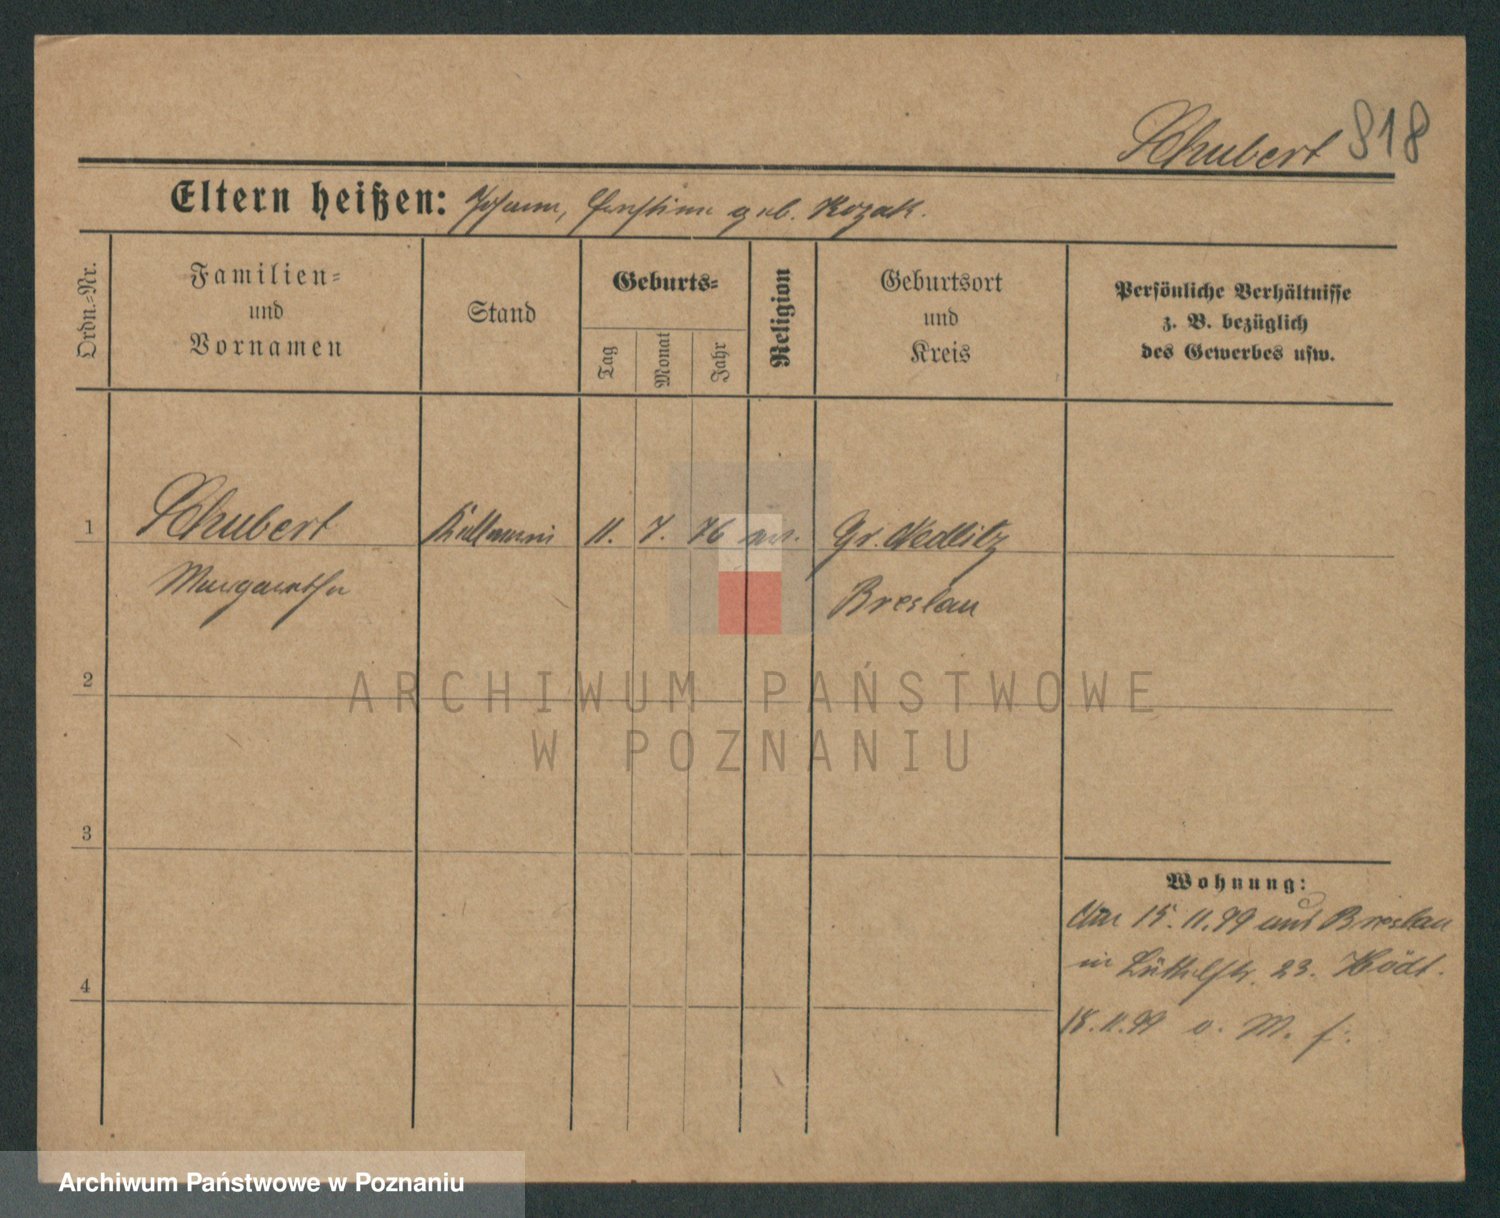 Schubert 818
Eltern heißen: Johann, Ernstine geb. Kozak.
Ordn.-Nr.
Familien-
und
Vornamen
Stand
Geburts-
Tag
Monat
Jahr
Religion
Geburtsort
und
Kreis
Persönliche Verhältnisse
z. B. bezüglich
des Gewerbes usw.
1
Schubert
Kellnerin
11. 7. 76 ev.
Gr. Nedlitz
Margarethe
Breslau
2
ARCHIWUM PAŃSTWOWE
W POZNANIU
3
4
Wohnung:
Am 15.11.99 aus Breslau
in 23.
18.11.99 v. M. f.
Archiwum Państwowe w Poznaniu